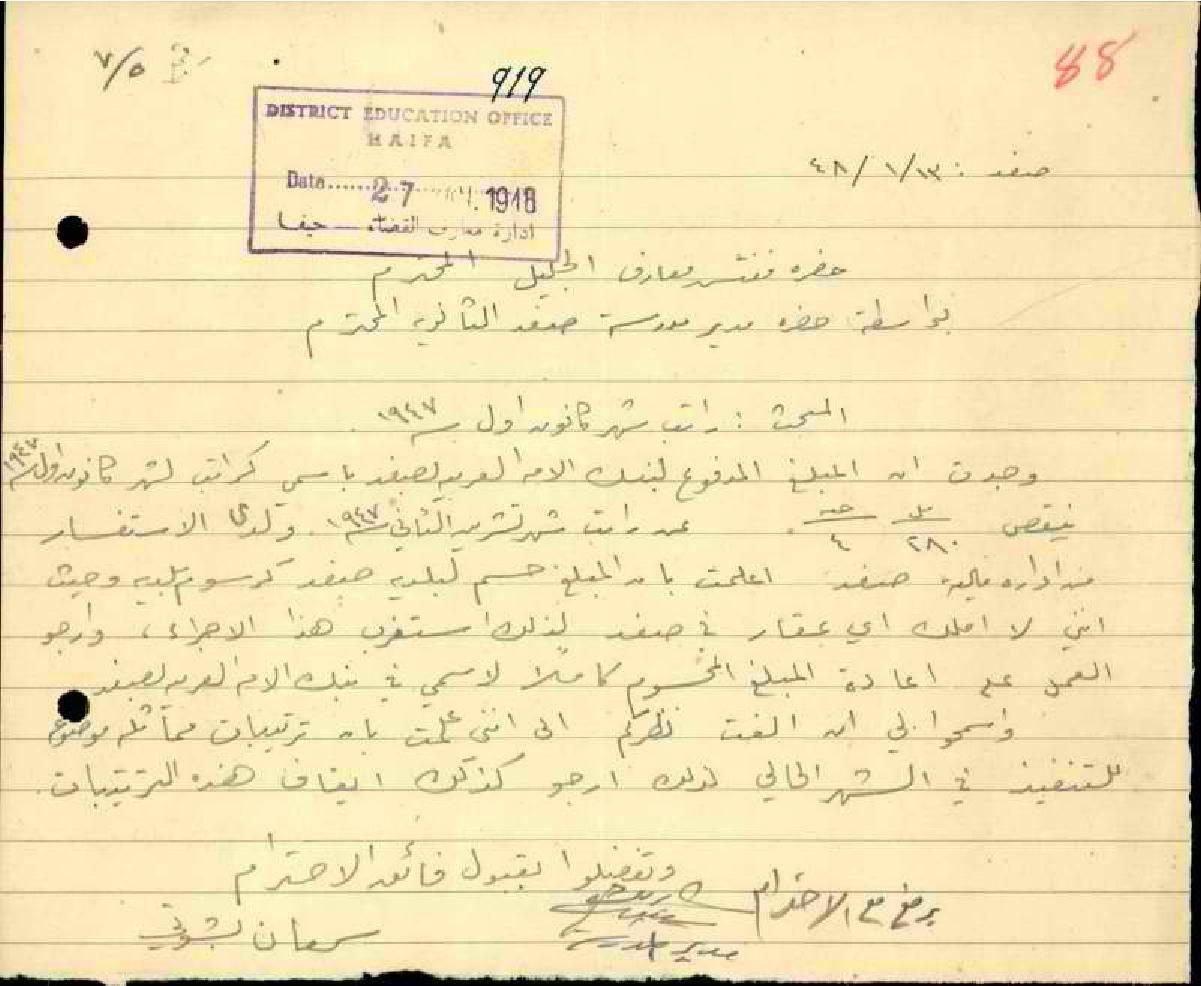 ٧/٥
919
88
DISTRICT EDUCATION OFFICE
HAIFA
Date 27 1948
ادارة معارف القضاء — حيفا
صفد : ١٣/١/٤٨
حضرة مفتش معارف الجليل المحترم
بواسطة حضرة مدير مدرسة صفد الثانوية المحترم
المبحث : راتب شهر كانون اول سنة ١٩٤٧
وجدت ان المبلغ المدفوع لبنك الامة العربية لصفد باسمي كراتب لشهر كانون اول سنة ١٩٤٧
ينقص ٢٨٠ مل ٤ جنيه عن راتب شهر تشرين الثاني سنة ١٩٤٧. ولدى الاستفسار
من ادارة مالية صفد اعلمت بان المبلغ حسم لبلدية صفد كرسوم بلدية وحيث
انني لا املك اي عقار في صفد لذلك استغرب هذا الاجراء، وارجو
العمل على اعادة المبلغ المحسوم كاملا لاسمي في بنك الامة العربية لصفد
واسمحوا لي ان الفت نظركم الى انني علمت بان ترتيبات مماثلة موضوع
للتنفيذ في الشهر الحالي لذلك ارجو كذلك ايقاف هذه الترتيبات.
وتفضلوا بقبول فائق الاحترام
يرفع مع الاحترام
مدير المدرسة
سمعان